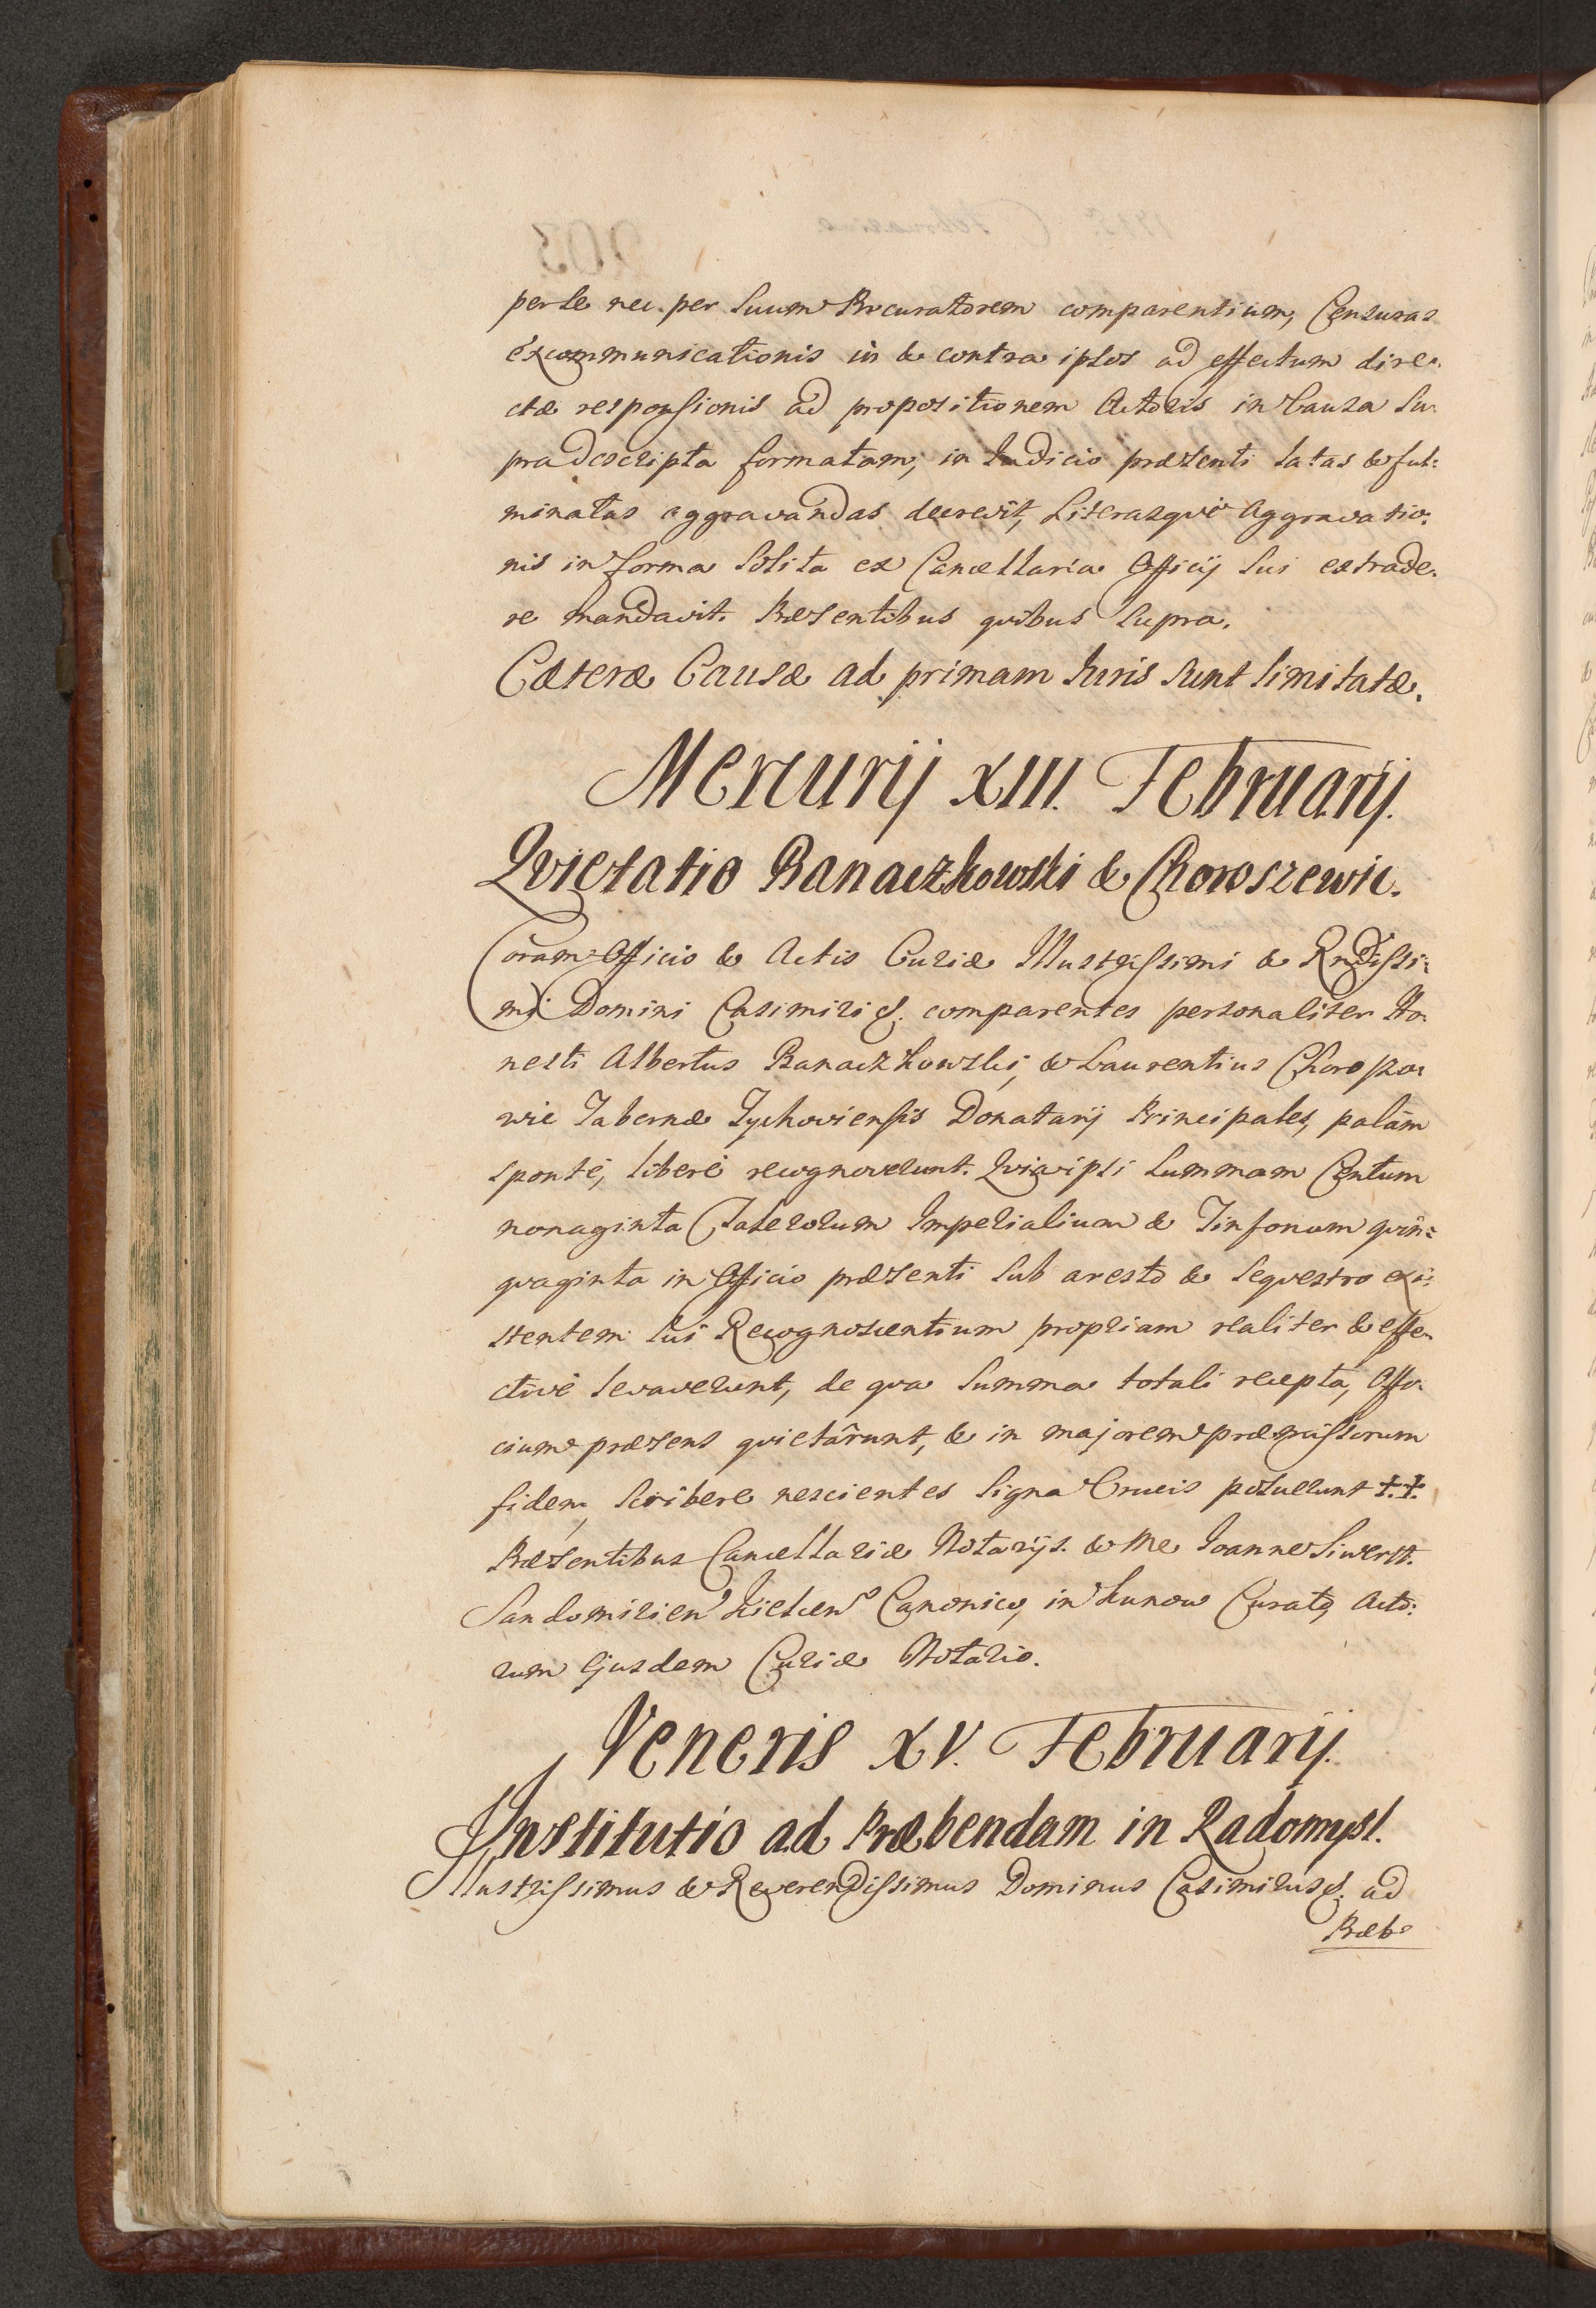 per se nec per suum Procuratorem comparentium, Censuras
excommunicationis in & contra ipsos ad effectum dire-
ctæ responsionis ad propositionem Actoris in Causa su-
pradescripta formatam, in Iudicio præsenti latas & ful:
minatas aggravandas decrevit, Literasqve Aggravatio-
nis in forma solita ex Cancellaria Officij sui extrade-
re mandavit. Præsentibus qvibus supra.
Cæteræ Causæ ad primam Iuris sunt limitatæ.
Mercurij XIII. Februarij.
Qvietatio Banaczkowski & Choroszewic.
Coram Officio & Actis Curiæ Illustrissimi & Rndissi:
mi Domini Casimiri &. comparentes personaliter Ho-
nesti Albertus Banaczkowski, & Laurentius Choroszo-
wic Tabernæ Tychoviensis Donatarij Principales, palàm
sponte, liberè recognoverunt. Qvia ipsi summam Centum
nonaginta Talerorum Imperialium & Tinfonum qvin:
qvaginta in Officio præsenti sub aresto & seqvestro exi:
stentem sui Recognoscentium propriam realiter & effe-
ctivè levaverunt, de qva summa totali recepta, Offi-
cium præsens qvietârunt, & in majorem præmissorum
fidem, scribere nescientes signa Crucis posuerunt ++.
Præsentibus Cancellariæ Notarijs. & Me Ioanne Siwerst.
Sandomirien Kielcen Canonico, in Kunow Curato, Acto:
rum Ejusdem Curiæ Notario.
Veneris XV. Februarij.
Institutio ad Præbendam in Radomysl.
Illustrissimus & Reverendissimus Dominus Casimirus &. ad
Præb-